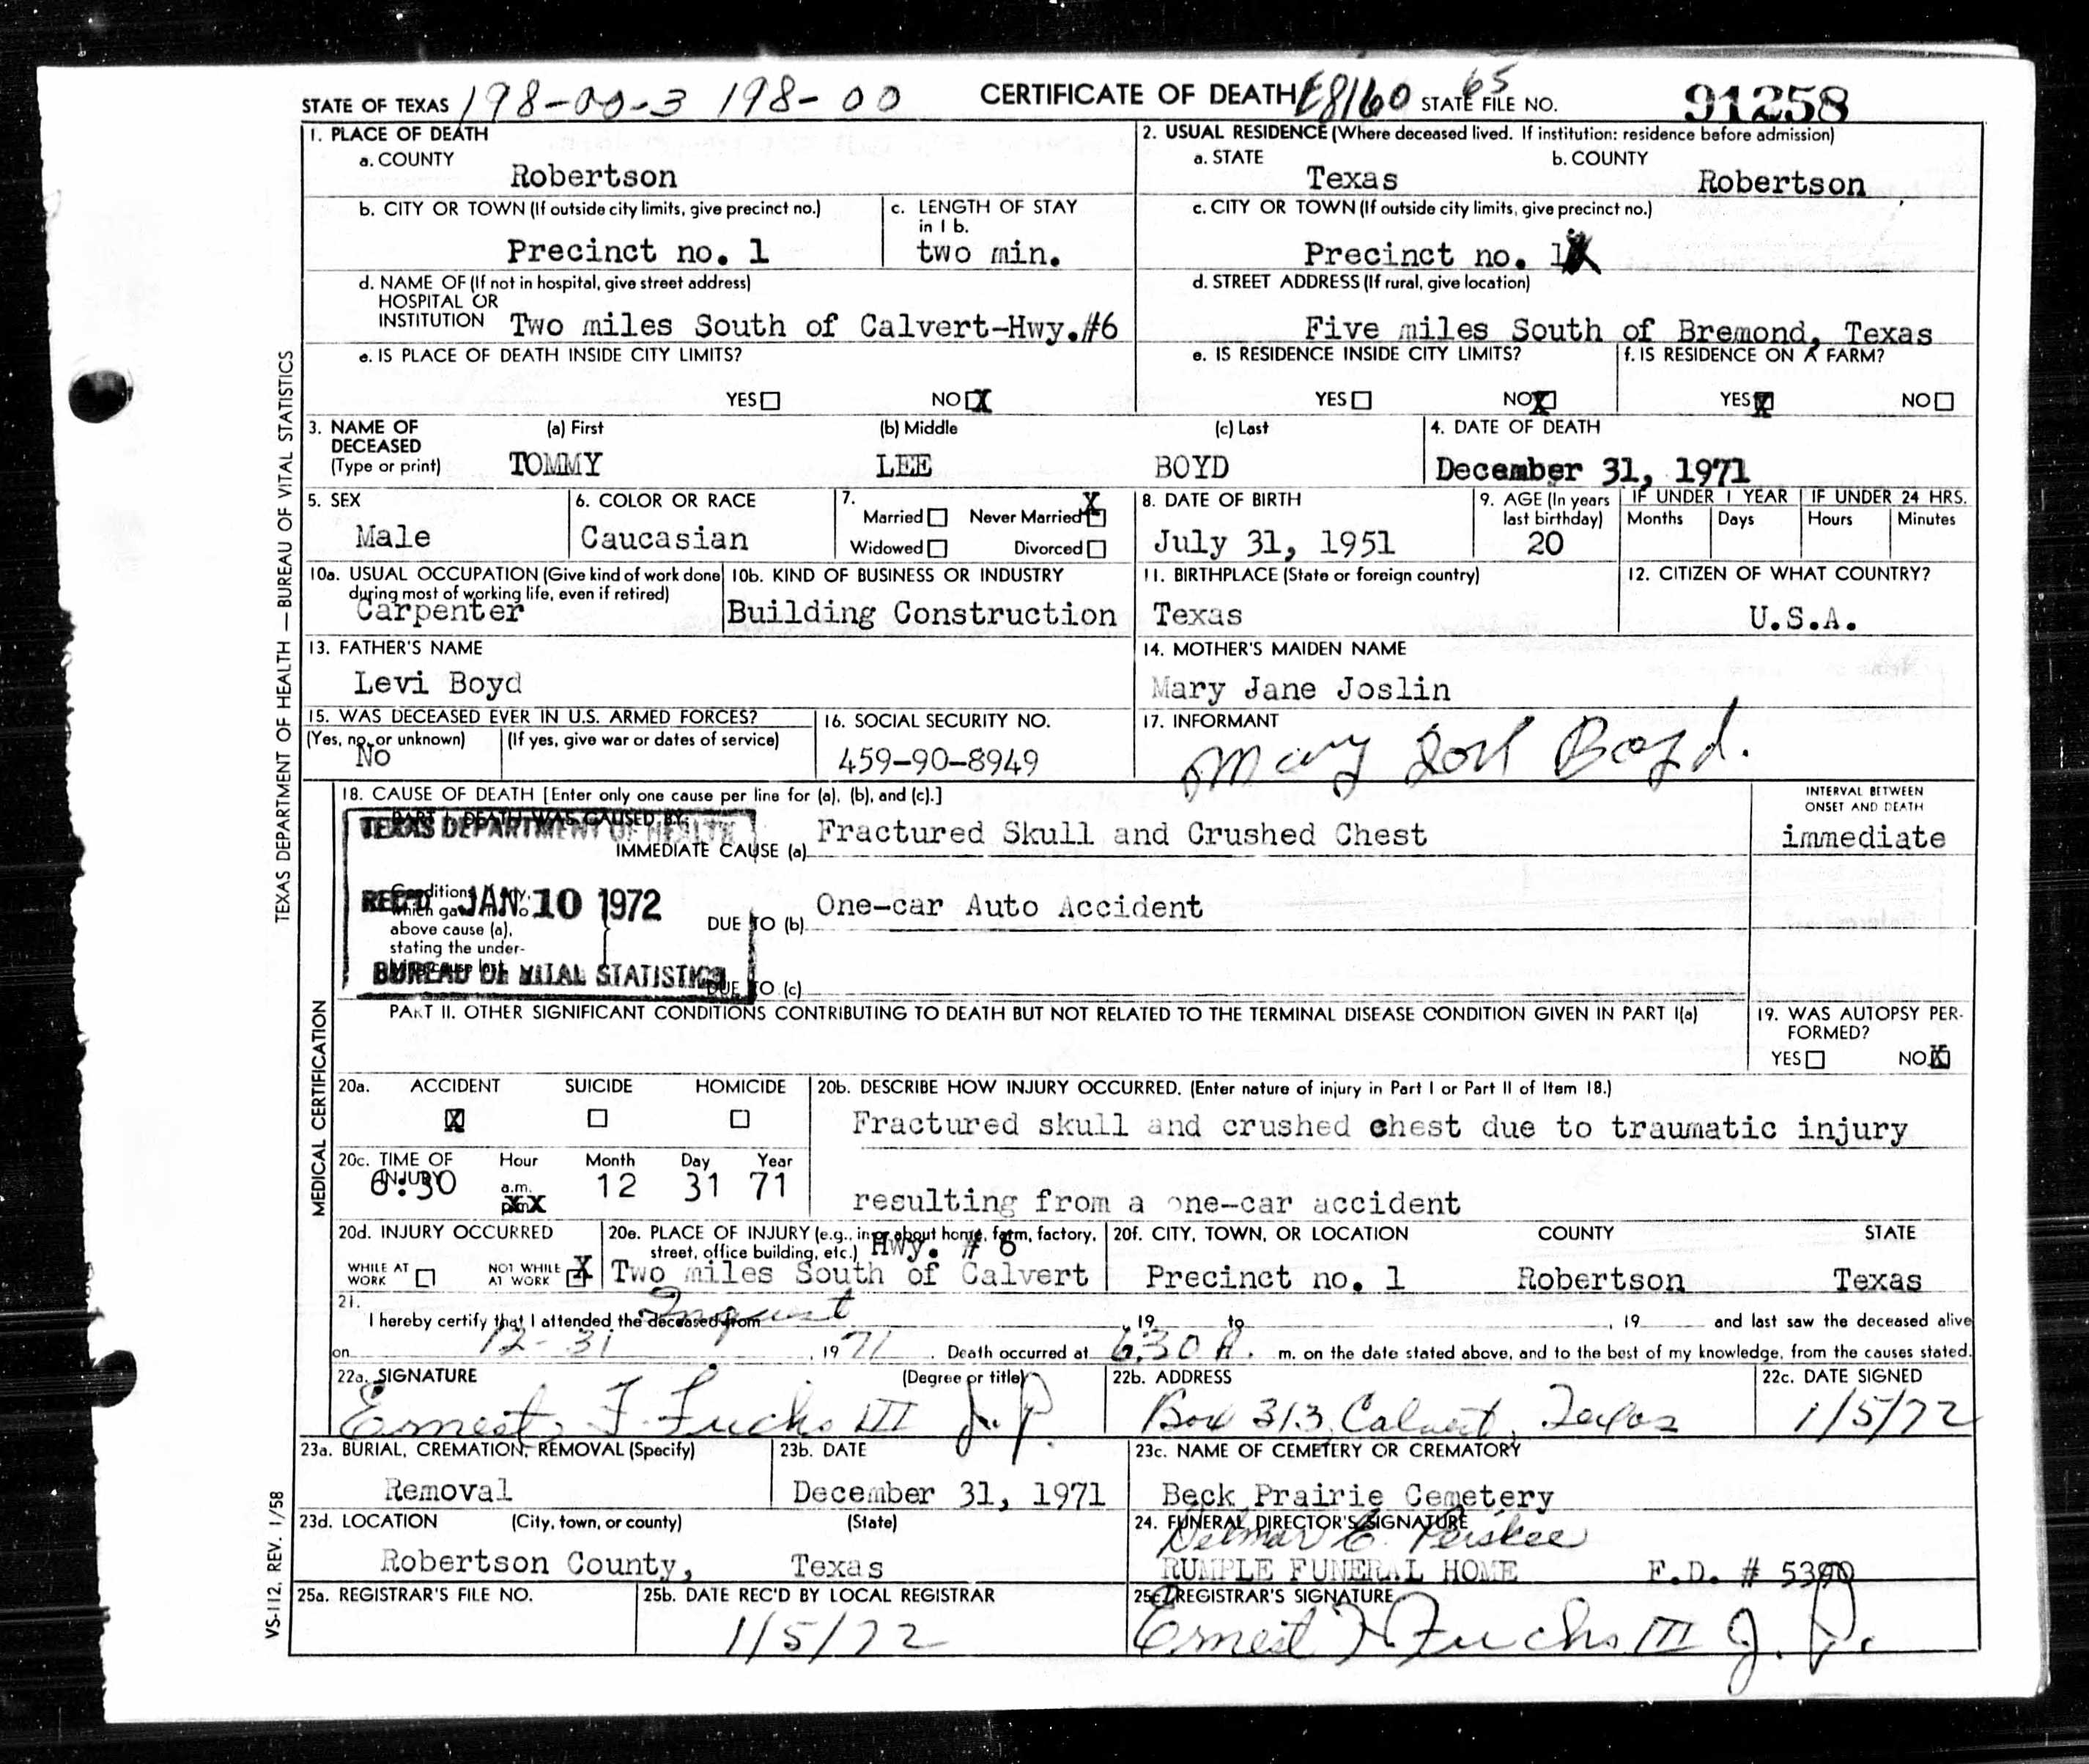 STATE OF TEXAS 198-00-3 198-00 CERTIFICATE OF DEATH E8160 65 STATE FILE NO. 91258
1. PLACE OF DEATH
a. COUNTY
Robertson
2. USUAL RESIDENCE (Where deceased lived. If institution: residence before admission)
a. STATE b. COUNTY
Texas Robertson
b. CITY OR TOWN (If outside city limits, give precinct no.)
Precinct no. 1
c. LENGTH OF STAY in 1 b.
two min.
c. CITY OR TOWN (If outside city limits, give precinct no.)
Precinct no. 1
d. NAME OF (If not in hospital, give street address)
HOSPITAL OR
INSTITUTION Two miles South of Calvert-Hwy.#6
d. STREET ADDRESS (If rural, give location)
Five miles South of Bremond, Texas
e. IS PLACE OF DEATH INSIDE CITY LIMITS?
YES NO X
e. IS RESIDENCE INSIDE CITY LIMITS?
YES NO X
f. IS RESIDENCE ON A FARM?
YES X NO
3. NAME OF DECEASED (Type or print)
(a) First (b) Middle (c) Last
TOMMY LEE BOYD
4. DATE OF DEATH
December 31, 1971
5. SEX
Male
6. COLOR OR RACE
Caucasian
7.
Married Never Married X
Widowed Divorced
8. DATE OF BIRTH
July 31, 1951
9. AGE (In years last birthday)
20
IF UNDER 1 YEAR
Months Days
IF UNDER 24 HRS.
Hours Minutes
10a. USUAL OCCUPATION (Give kind of work done during most of working life, even if retired)
Carpenter
10b. KIND OF BUSINESS OR INDUSTRY
Building Construction
11. BIRTHPLACE (State or foreign country)
Texas
12. CITIZEN OF WHAT COUNTRY?
U.S.A.
13. FATHER'S NAME
Levi Boyd
14. MOTHER'S MAIDEN NAME
Mary Jane Joslin
15. WAS DECEASED EVER IN U.S. ARMED FORCES?
(Yes, no, or unknown) (If yes, give war or dates of service)
No
16. SOCIAL SECURITY NO.
459-90-8949
17. INFORMANT
Mary Boyd.
18. CAUSE OF DEATH [Enter only one cause per line for (a), (b), and (c).]
INTERVAL BETWEEN ONSET AND DEATH
PART I. DEATH WAS CAUSED BY:
TEXAS DEPARTMENT OF HEALTH
IMMEDIATE CAUSE (a) Fractured Skull and Crushed Chest
immediate
REC'D JAN 10 1972
Conditions, if any, which gave rise to above cause (a), stating the underlying cause last.
DUE TO (b) One-car Auto Accident
BUREAU OF VITAL STATISTICS
DUE TO (c)
PART II. OTHER SIGNIFICANT CONDITIONS CONTRIBUTING TO DEATH BUT NOT RELATED TO THE TERMINAL DISEASE CONDITION GIVEN IN PART I(a)
19. WAS AUTOPSY PERFORMED?
YES NO X
20a. ACCIDENT SUICIDE HOMICIDE
X
20b. DESCRIBE HOW INJURY OCCURRED. (Enter nature of injury in Part I or Part II of Item 18.)
Fractured skull and crushed chest due to traumatic injury
resulting from a one-car accident
20c. TIME OF INJURY Hour Month Day Year
6:30 a.m. 12 31 71
20d. INJURY OCCURRED
WHILE AT WORK NOT WHILE AT WORK X
20e. PLACE OF INJURY (e.g., in or about home, farm, factory, street, office building, etc.)
Hwy. # 6
Two miles South of Calvert
20f. CITY, TOWN, OR LOCATION COUNTY STATE
Precinct no. 1 Robertson Texas
21. Inquest
I hereby certify that I attended the deceased from , 19 to , 19 and last saw the deceased alive
on 12-31 , 19 71 . Death occurred at 6:30 A. m. on the date stated above, and to the best of my knowledge, from the causes stated.
22a. SIGNATURE (Degree or title)
Ernest F. Fuchs III J.P.
22b. ADDRESS
Box 313, Calvert, Texas
22c. DATE SIGNED
1/5/72
23a. BURIAL, CREMATION, REMOVAL (Specify)
Removal
23b. DATE
December 31, 1971
23c. NAME OF CEMETERY OR CREMATORY
Beck Prairie Cemetery
23d. LOCATION (City, town, or county) (State)
Robertson County, Texas
24. FUNERAL DIRECTOR'S SIGNATURE
Delmar E.
RUMPLE FUNERAL HOME F.D. #
25a. REGISTRAR'S FILE NO.
25b. DATE REC'D BY LOCAL REGISTRAR
1/5/72
25c. REGISTRAR'S SIGNATURE
Ernest F. Fuchs III J.P.
TEXAS DEPARTMENT OF HEALTH — BUREAU OF VITAL STATISTICS
MEDICAL CERTIFICATION
VS-112, REV. 1/58